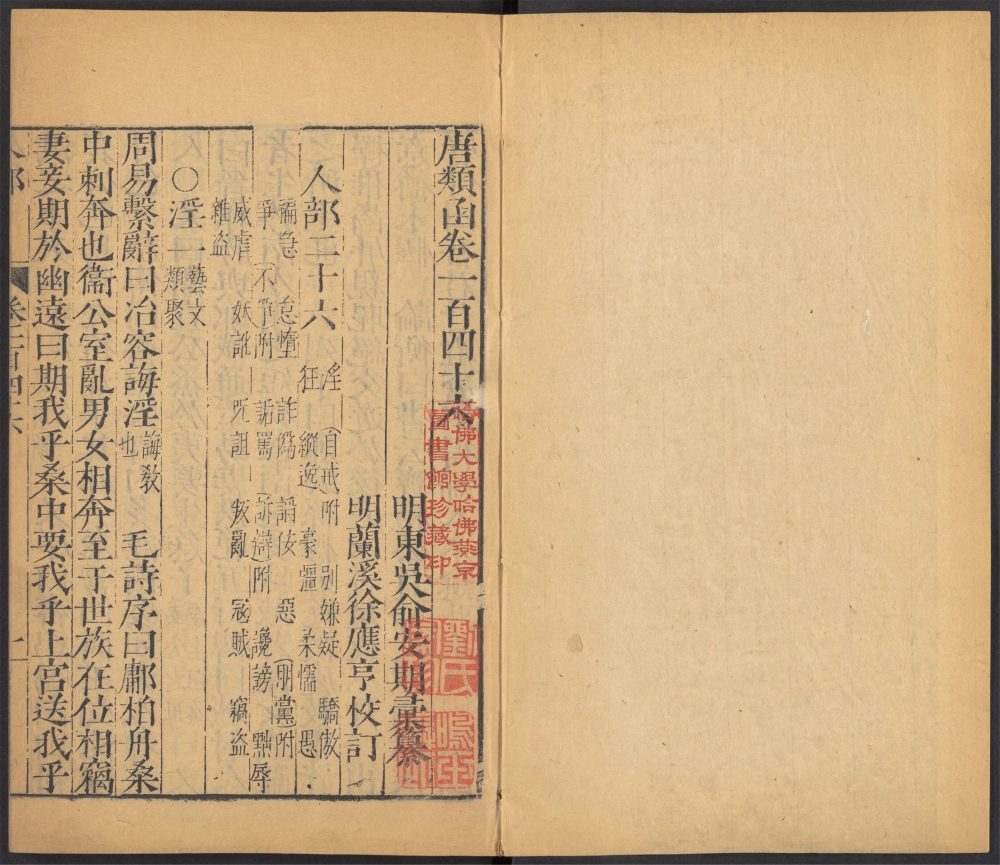 唐類函卷一百四十六
明東吳俞安期彙纂
明蘭溪徐應亨校訂
人部二十六
淫(自戒附 別嫌疑 驕傲
狂 縱逸 豪彊 柔懦 愚
褊急 怠惰 詐偽 諂佞 惡 (朋黨附
爭(不爭附 詬罵(訴辯附 讒謗 黜辱
威虐 妖訛 呪詛 叛亂 寇賊 竊盜
雜盜
○淫一藝文類聚
周易繫辭曰冶容誨淫誨教也 毛詩序曰鄘柏舟桑
中刺奔也衞公室亂男女相奔至于世族在位相竊
妻妾期於幽遠曰期我乎桑中要我乎上宮送我乎
人部
卷一百四十六
一
哈佛大學哈佛燕京
圖書館珍藏印
劉氏